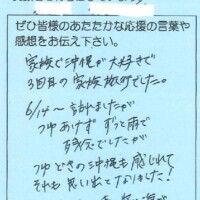 ぜひ皆様のあたたかな応援の言葉や
感想をお伝え下さい。
家族で沖縄が大好きで
3回目の家族旅行でした。
6/14〜 訪れましたが
つゆあけず ずっと雨で
残念でしたが
つゆどきの沖縄も感じれて
それも思い出となりました！